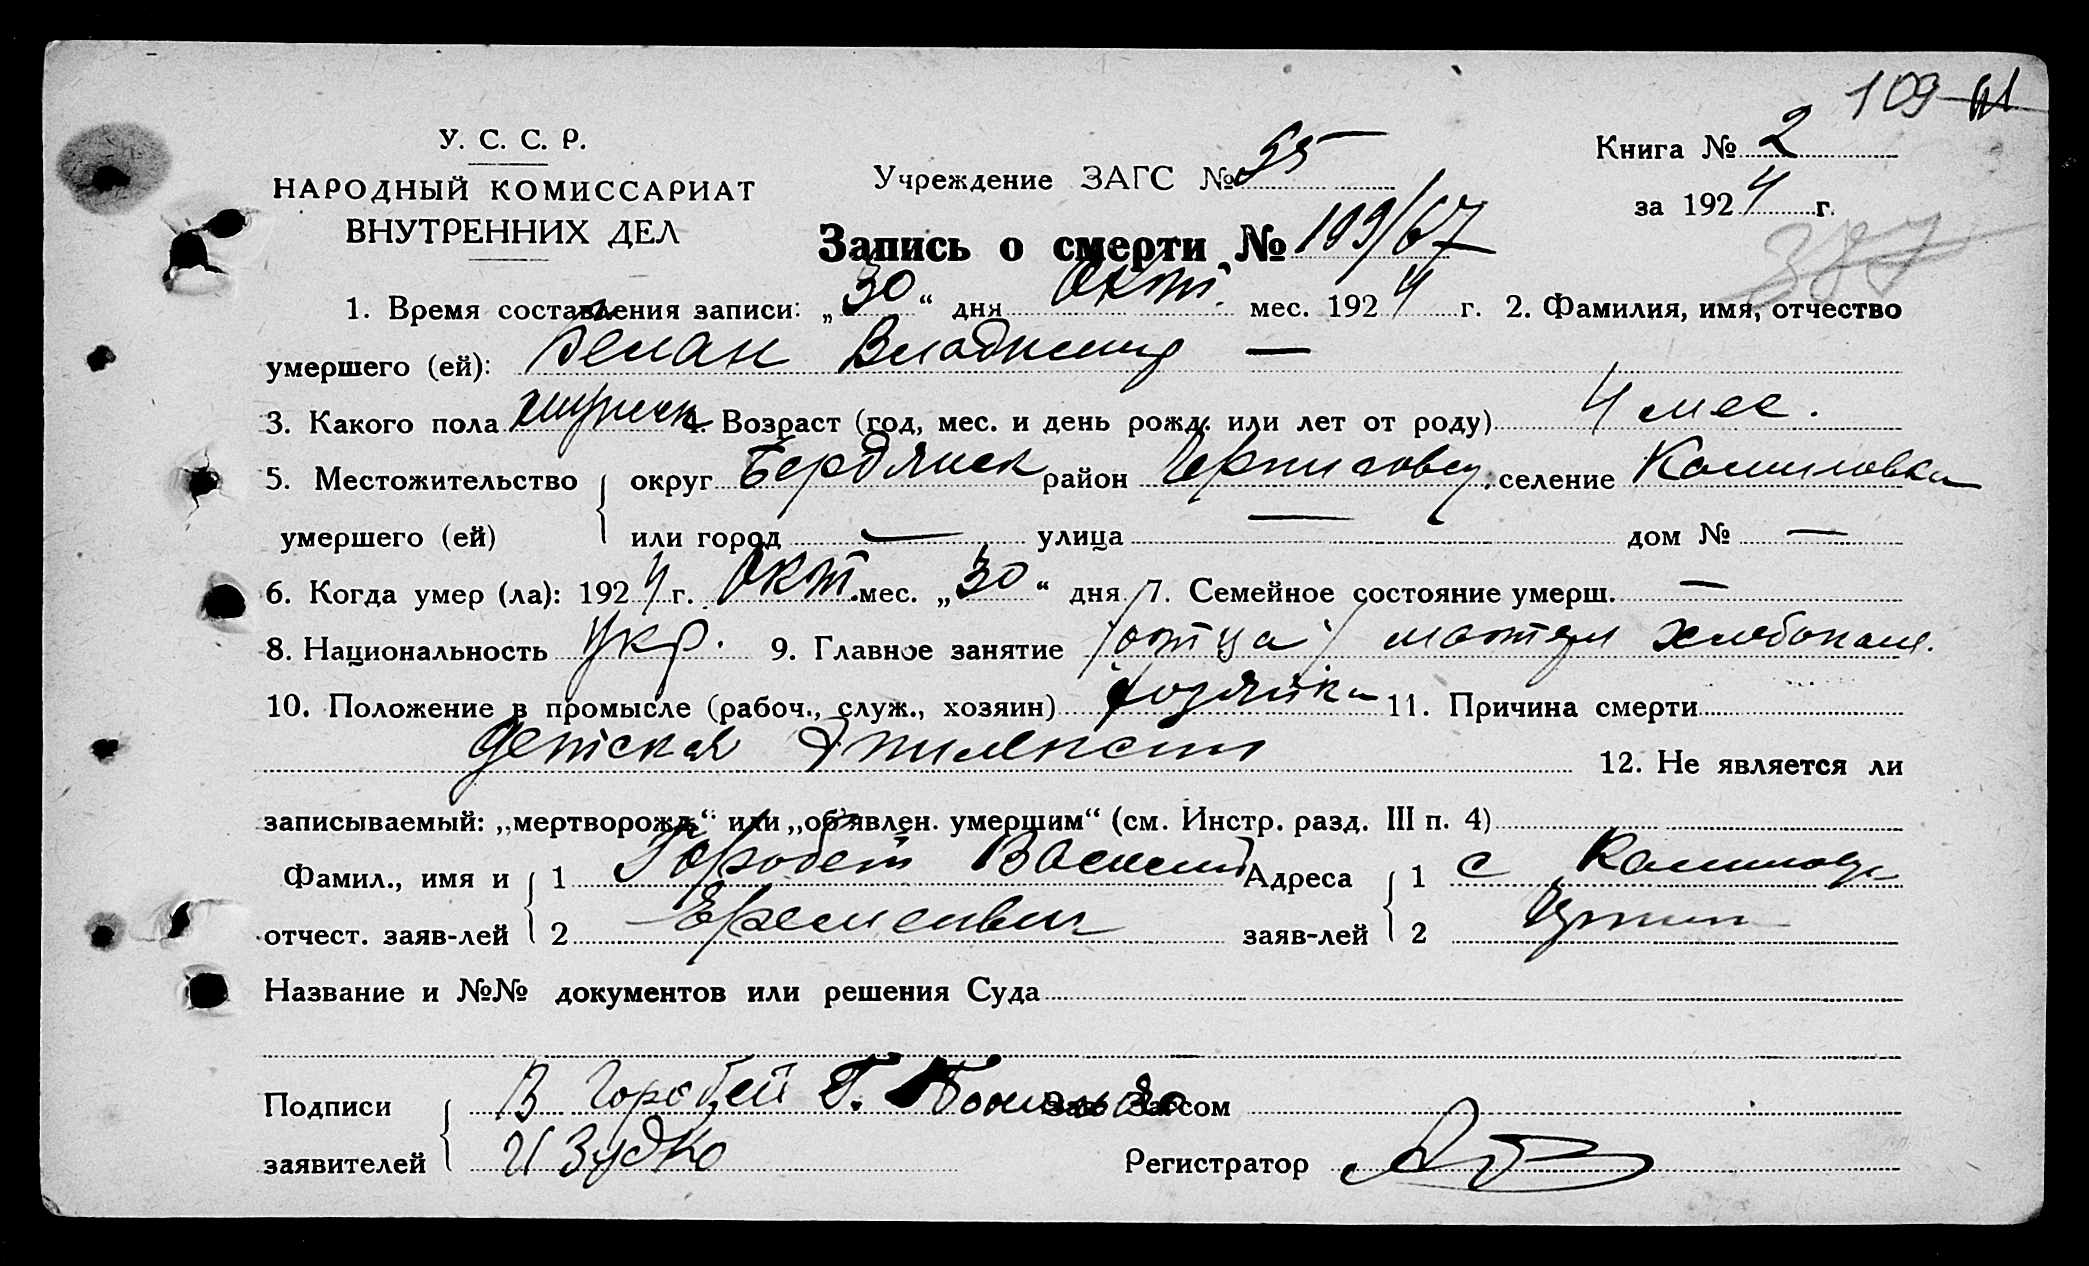 109
У. С. С. Р.
НАРОДНЫЙ КОМИССАРИАТ
ВНУТРЕННИХ ДЕЛ
Учреждение ЗАГС №
Книга № 2
за 1924 г.
387
Запись о смерти № 109/67
1. Время составления записи: „30“ дня Окт. мес. 1924 г. 2. Фамилия, имя, отчество
умершего (ей): Белан Владимир —
3. Какого пола мужск 4. Возраст (год, мес. и день рожд. или лет от роду) 4 мес.
5. Местожительство округ Бердянск район Черниговск. селение
умершего (ей) или город — улица — дом № —
6. Когда умер (ла): 1924 г. Окт. мес. „30“ дня. 7. Семейное состояние умерш. —
8. Национальность Укр. 9. Главное занятие /отца/ матери хлебопаш.
10. Положение в промысле (рабоч., служ., хозяин) хозяйка 11. Причина смерти
детская Эпилепсия 12. Не является ли
записываемый: „мертворожд.“ или „об'явлен. умершим“ (см. Инстр. разд. III п. 4)
Фамил., имя и 1 Горобей Василий Адреса 1 с
отчест. заяв-лей 2 Еремеевич заяв-лей 2
Название и №№ документов или решения Суда
Подписи В Горобей Г. Зав. Загсом
заявителей И Зудко Регистратор